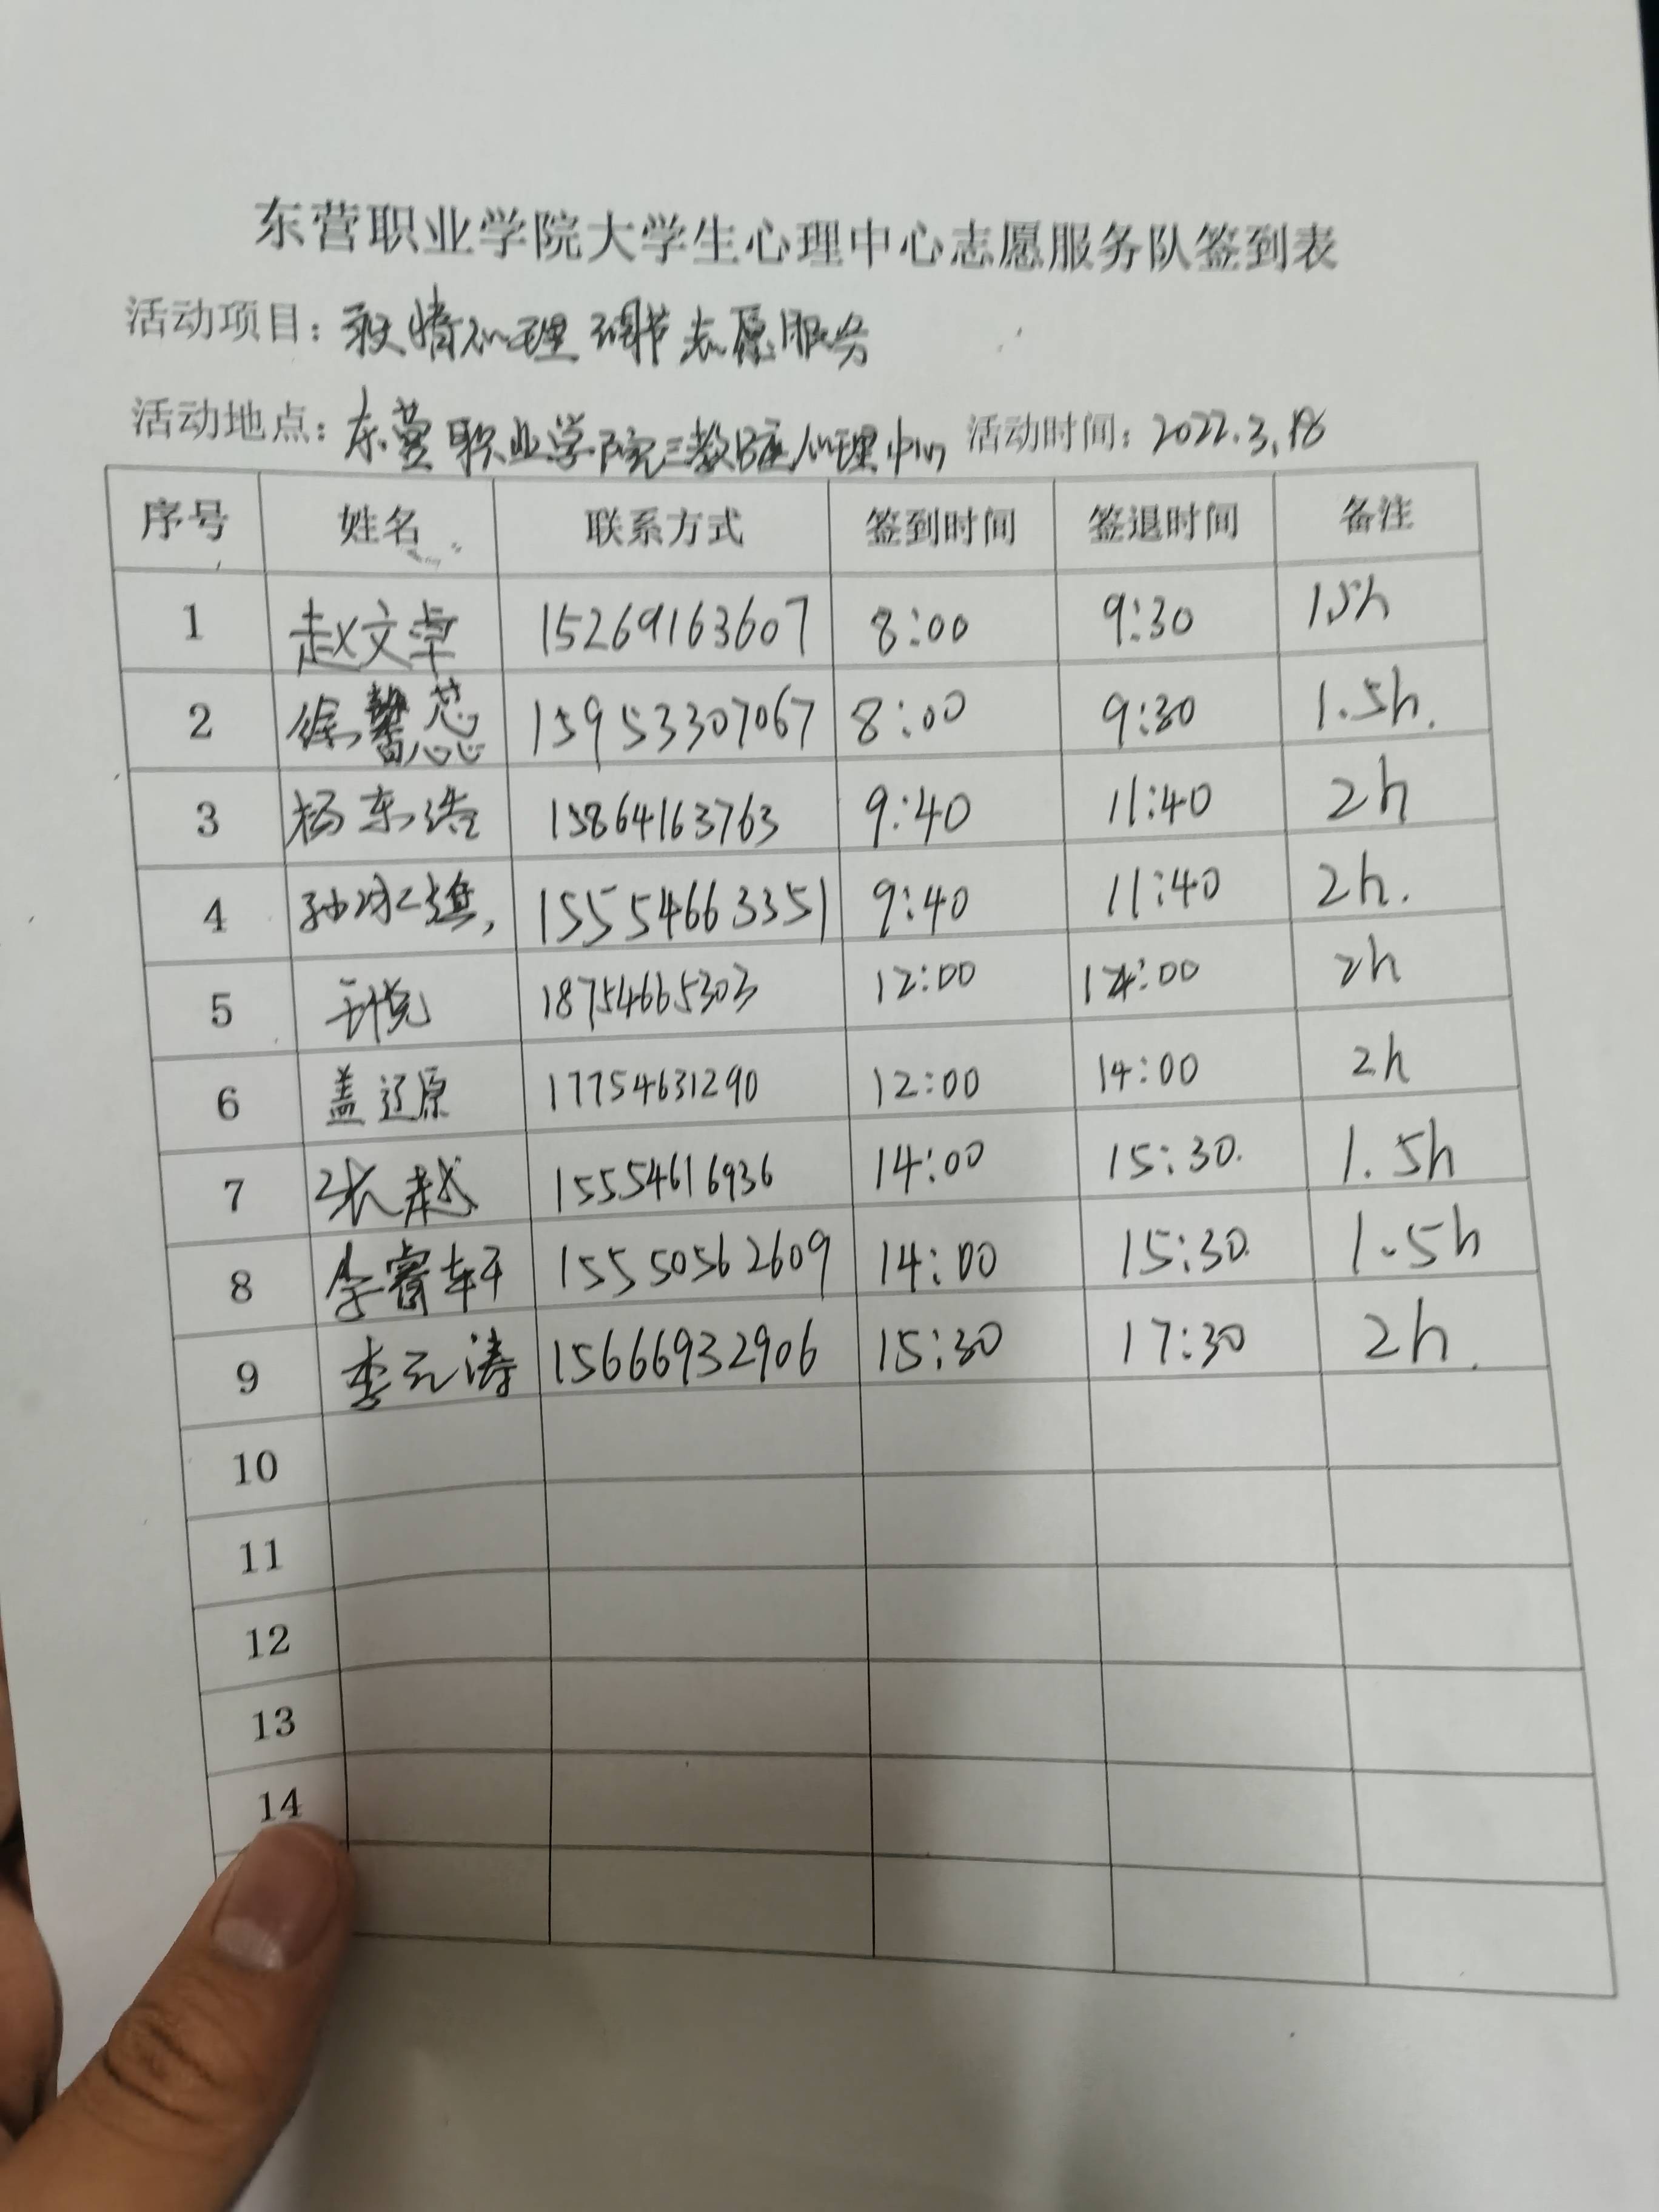 东营职业学院大学生心理中心志愿服务队签到表
活动项目：疫情心理调节志愿服务
活动地点：东营职业学院三教B座心理中心 活动时间：2022.3.18
序号 姓名 联系方式 签到时间 签退时间 备注
1 赵文卓 15269163607 8:00 9:30 1.5h
2 徐芯 15953307067 8:00 9:30 1.5h.
3 杨东浩 15864163763 9:40 11:40 2h
4 孙 15554663351 9:40 11:40 2h.
5 18754665303 12:00 14:00 2h
6 盖辽原 17754631290 12:00 14:00 2h
7 张越 15554616936 14:00 15:30. 1.5h
8 李睿轩 15550562609 14:00 15:30. 1.5h
9 李元涛 15666932906 15:30 17:30 2h.
10
11
12
13
14